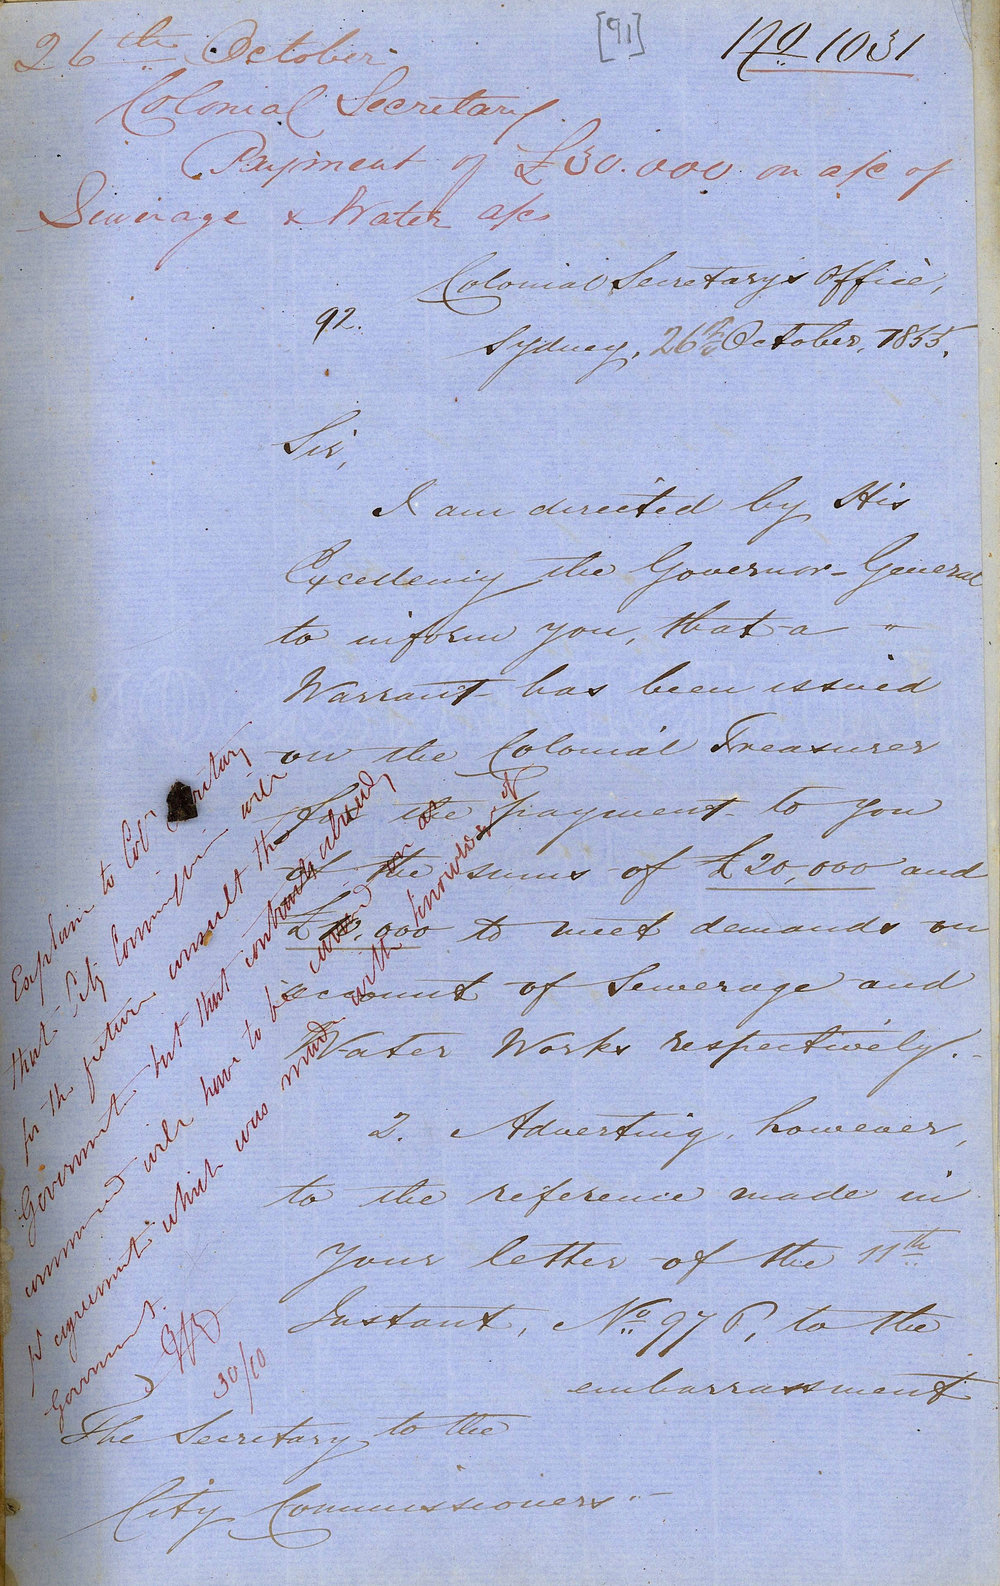 [91]
No 1031
26th October
Colonial Secretary
Payment of £30.000 on a/c of
Sewerage & Water a/cs
Colonial Secretary's Office,
92.
Sydney, 26th October, 1855.
Sir,
I am directed by His
Excellency the Governor-General
to inform you, that a
Warrant has been issued
on the Colonial Treasurer
for the payment to you
of the sums of £20,000 and
£10,000 to meet demands on
account of Sewerage and
Water Works respectively.
2. Adverting, however,
to the reference made in
your letter of the 11th
Instant, No. 976, to the
embarrassment
The Secretary to the
City Commissioners
Explain to Col
that City Commission will
for the future consult the
Government but that contracts already
commenced will have to be carried on as
agreement which was made with knowledge of
Government.
30/10